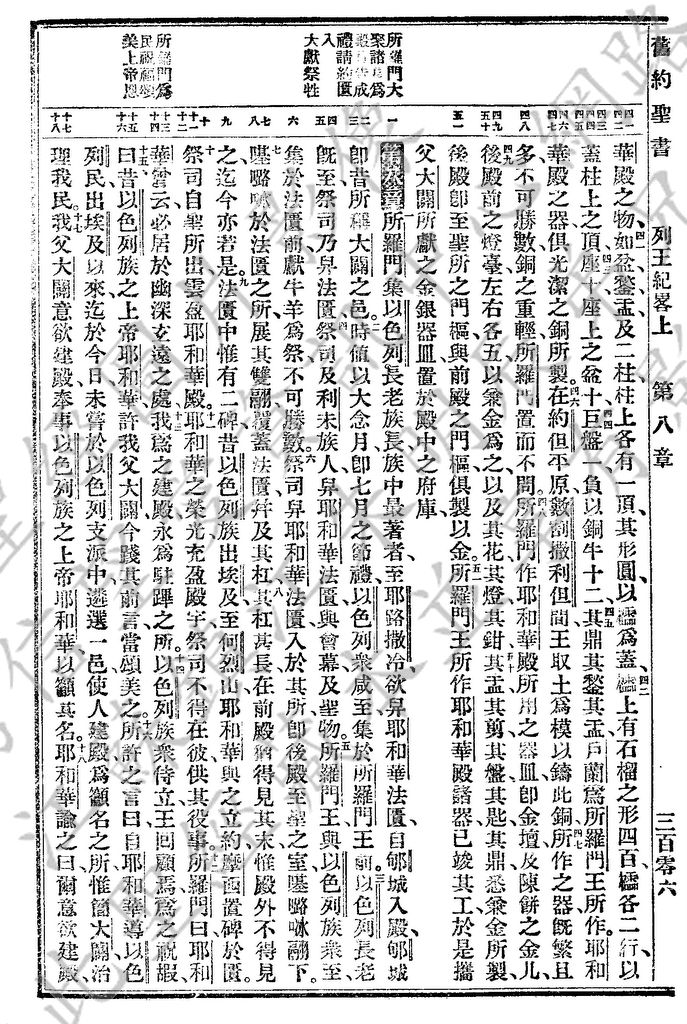 舊約聖書 列王紀畧上 第八章 三百零六
所羅門大
聚諸長為
禮請約匱
入
大獻祭牲
所羅門為
民祝福頌
美上帝恩
華殿之物如盆鍫盂及二柱柱上各有一頂其形圓以櫺為蓋櫺上有石榴之形四百櫺各二行以
蓋柱上之頂座十座上之盆十巨盤一負以銅牛十二其鼎其鍫其盂戶蘭為所羅門王所作耶和
華殿之器俱光潔之銅所製在約但平原數割撒利但間王取土為模以鑄此銅所作之器旣繁且
多不可勝數銅之重輕所羅門置而不問所羅門作耶和華殿所用之器皿卽金壇及陳餅之金几
後殿前之燈臺左右各五以兼金為之以及其花其燈其鉗其盂其剪其盤其匙其鼎悉兼金所製
後殿卽至聖所之門樞與前殿之門樞俱製以金所羅門王所作耶和華殿諸器已竣其工於是攜
父大闢所獻之金銀器皿置於殿中之府庫
第八章所羅門集以色列長老族長族中最著者至耶路撒冷欲舁耶和華法匱自郇城入殿郇城
卽昔所稱大闢之邑時値以大念月卽七月之節禮以色列衆咸至集於所羅門王前以色列長老
旣至祭司乃舁法匱祭司及利未族人舁耶和華法匱與會幕及聖物所羅門王與以色列族衆至
集於法匱前獻牛羊為祭不可勝數祭司舁耶和華法匱入於其所卽後殿至聖之室𠼻㗉㕸翮下
𠼻㗉㕸於法匱之所展其雙翮覆蓋法匱幷及其杠其杠甚長在前殿猶得見其末惟殿外不得見
之迄今亦若是法匱中惟有二碑昔以色列族出埃及至何烈山耶和華與之立約摩西置碑於匱
祭司自聖所出雲盈耶和華殿耶和華之榮光充盈殿宇祭司不得在彼供其役事所羅門曰耶和
華嘗云必居於幽深玄遠之處我為之建殿永為駐蹕之所以色列族衆侍立王回顧焉為之祝嘏
曰昔以色列族之上帝耶和華許我父大闢今踐其前言當頌美之所許之言曰自耶和華導以色
列民出埃及以來迄於今日未嘗於以色列支派中遴選一邑使人建殿為籲名之所惟簡大闢治
理我民我父大闢意欲建殿奉事以色列族之上帝耶和華以籲其名耶和華諭之曰爾意欲建殿